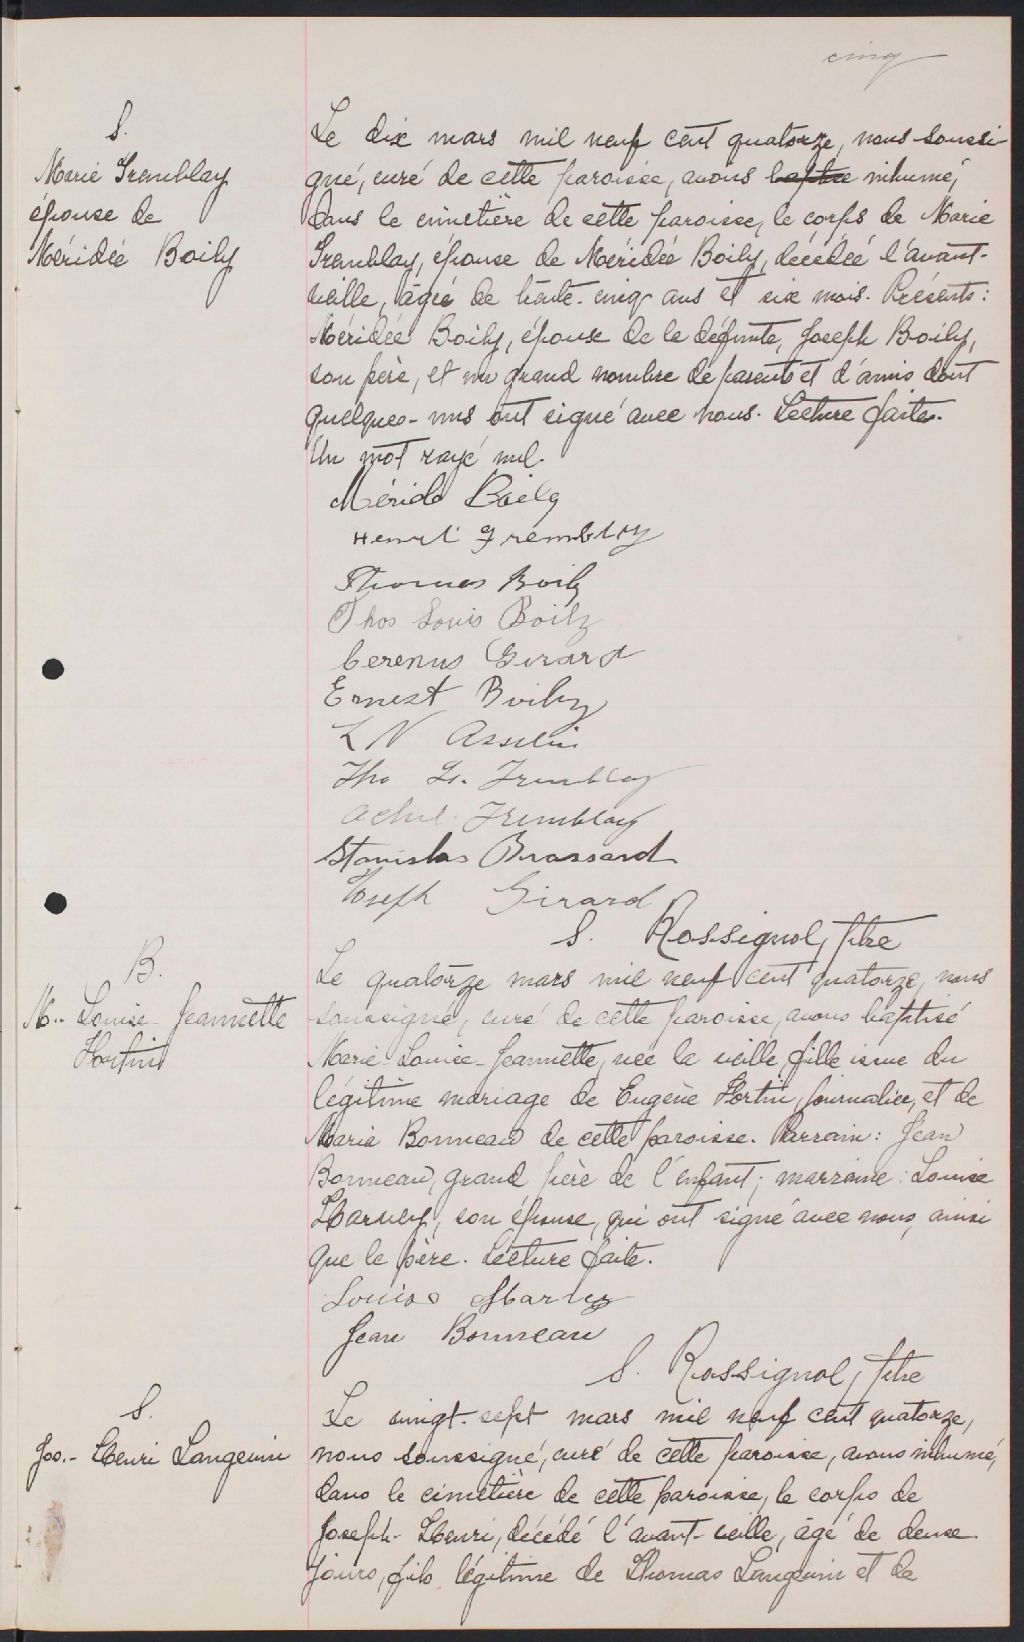 cinq
S.
Marie Tremblay
épouse de
Méridée Boily
Le dix mars mil neuf cent quatorze, nous soussi-
gné, curé de cette paroisse, avons baptisé inhumé,
dans le cimetière de cette paroisse, le corps de Marie
Tremblay, épouse de Méridée Boily, décédée l'avant-
veille, âgée de trente-cinq ans et six mois. Présents:
Méridée Boily, épouse de la défunte, Joseph Boily,
son père, et un grand nombre de parents et d'amis dont
quelques-uns ont signé avec nous. Lecture faite.
Un mot rayé nul.
Mérida Boily
Henri Tremblay
Thomas Boily
Thos Louis Boily
Cerenus Girard
Ernest Boily
L N Asselin
Ths Ls. Tremblay
Achil Tremblay
Stanislas Brassard
Joseph Girard
S. Rossignol, ptre
B.
M.- Louise-Jeannette
Fortin
Le quatorze mars mil neuf cent quatorze, nous
soussigné, curé de cette paroisse, avons baptisé
Marie-Louise-Jeannette, née la veille, fille issue du
légitime mariage de Eugène Fortin, journalier, et de
Maria Bonneau de cette paroisse. Parrain: Jean
Bonneau, grand père de l'enfant; marraine: Louise
Harvey, son épouse, qui ont signé avec nous, ainsi
que le père. Lecture faite.
Louise Harvey
Jean Bonneau
S. Rossignol, ptre
S.
Jos.- Henri Langevin
Le vingt-sept mars mil neuf cent quatorze,
nous soussigné, curé de cette paroisse, avons inhumé,
dans le cimetière de cette paroisse, le corps de
Joseph-Henri, décédé l'avant-veille, âgé de deux
jours, fils légitime de Thomas Langevin et de